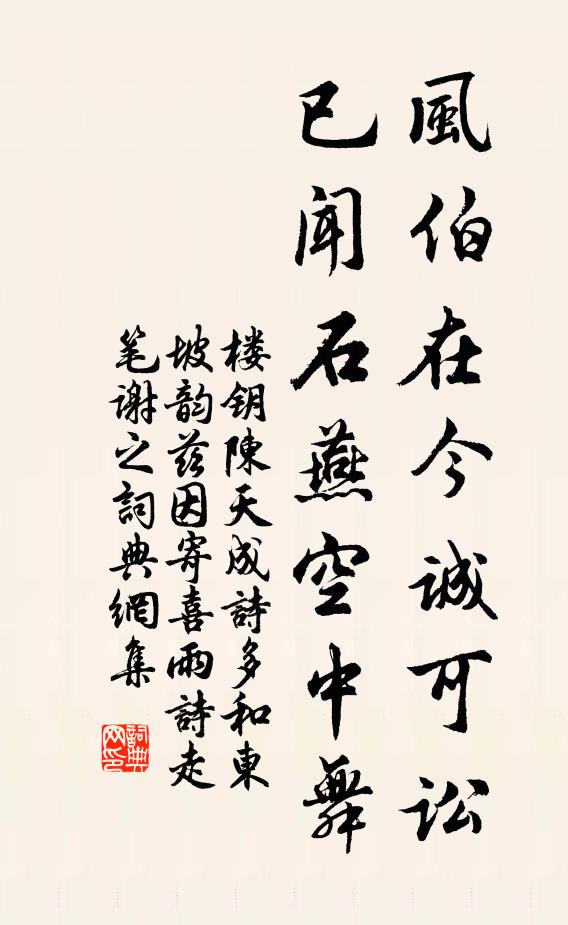 風伯在今誠可訟
已聞石燕空中舞
楼钥陳天成詩多和東
坡韵兹因寄喜雨詩走
笔谢之詞典網集
詞典
网印